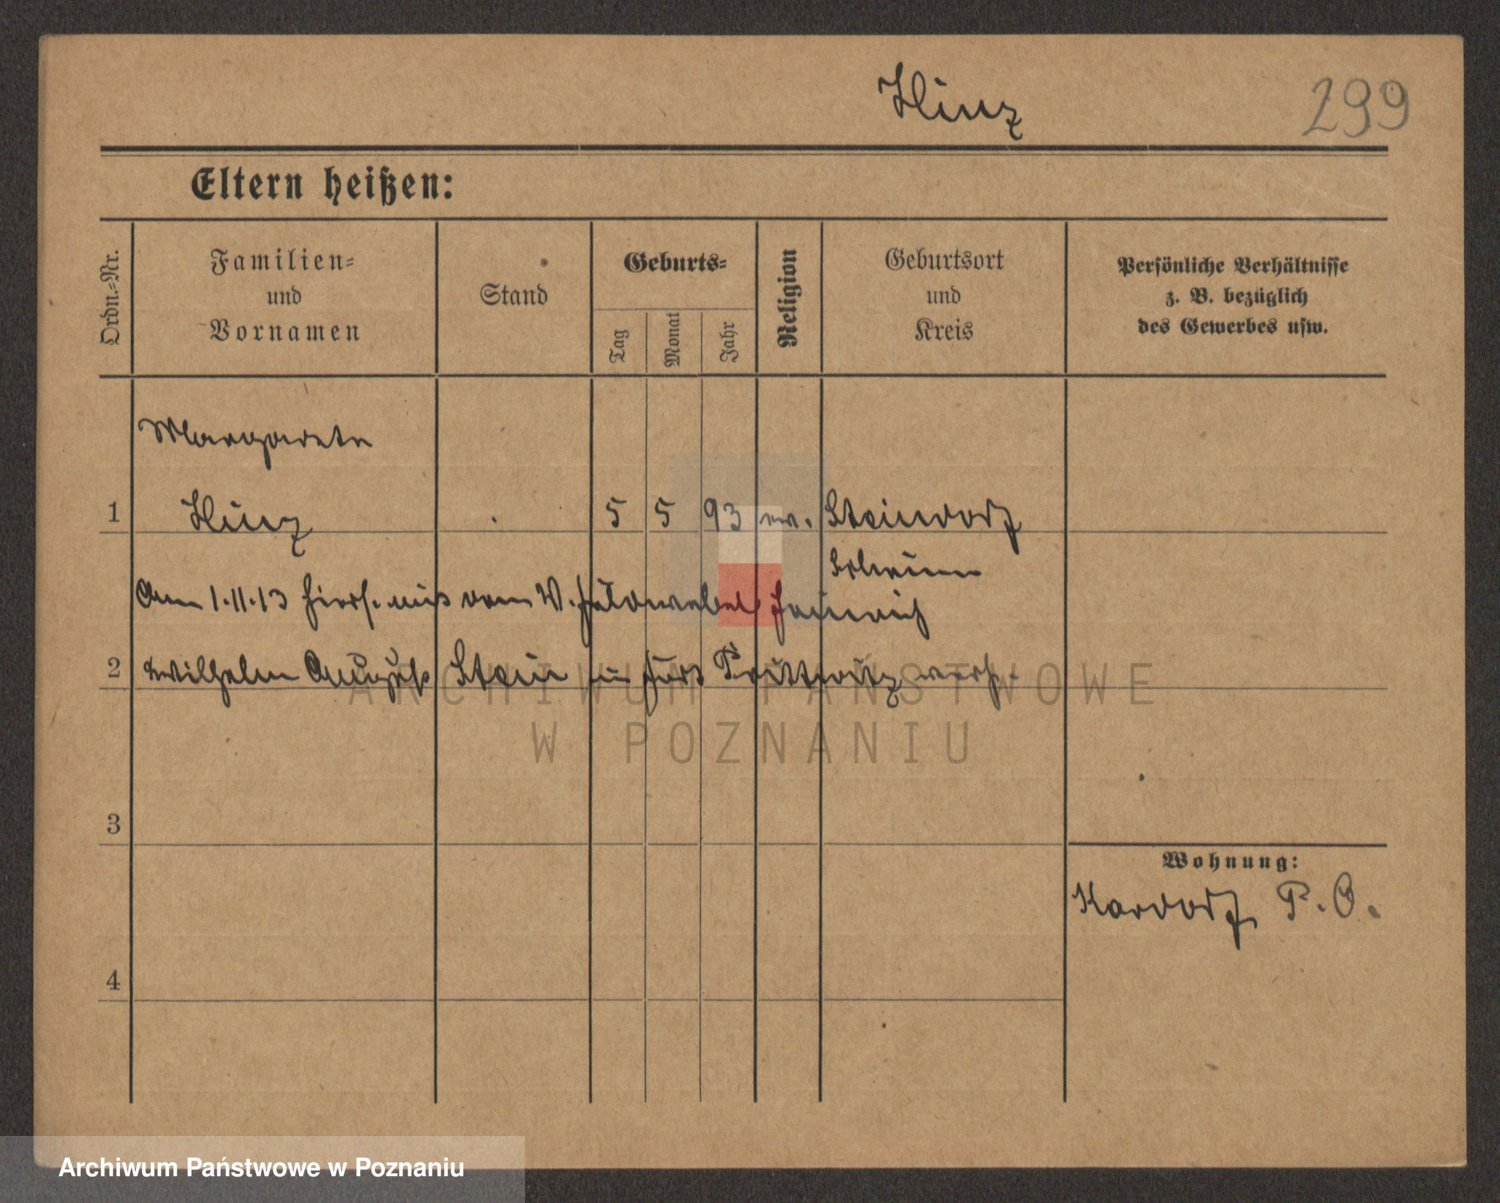 Hinz
299
Eltern heißen:
Ordn.-Nr.
Familien-
und
Vornamen
Stand
Geburts-
Tag
Monat
Jahr
Religion
Geburtsort
und
Kreis
Persönliche Verhältnisse
z. B. bezüglich
des Gewerbes usw.
Margarete
1 Hinz 5 5 93 ev. Steindorf
Schrimm
Am 1.11.13 hiers. mit dem V. Feldwebel Heinrich
2 Wilhelm August Stein in Fort Prittwitz verh.
3
4
Wohnung:
Kardorf P. O.
ARCHIWUM PAŃSTWOWE
W POZNANIU
Archiwum Państwowe w Poznaniu